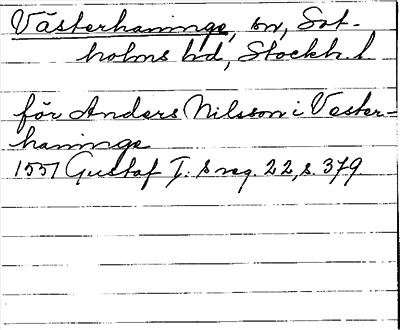 Västerhaninge, sn, Sot-
holms hd, Stockh. l
för Anders Nilsson i Vester-
haninge
1557 Gustaf I:s reg. 22, s. 379